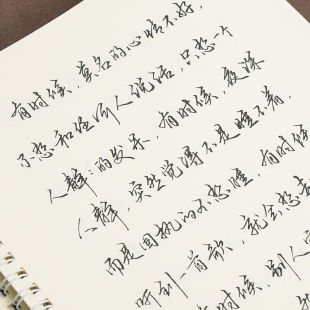 有时候，莫名的心情不好，
不想和任何人说话，只想一个
人静静的发呆，有时候，夜深
人静，突然觉得不是睡不着，
而是固执的不想睡，有时候
听到一首歌，就会想
有时候，别人